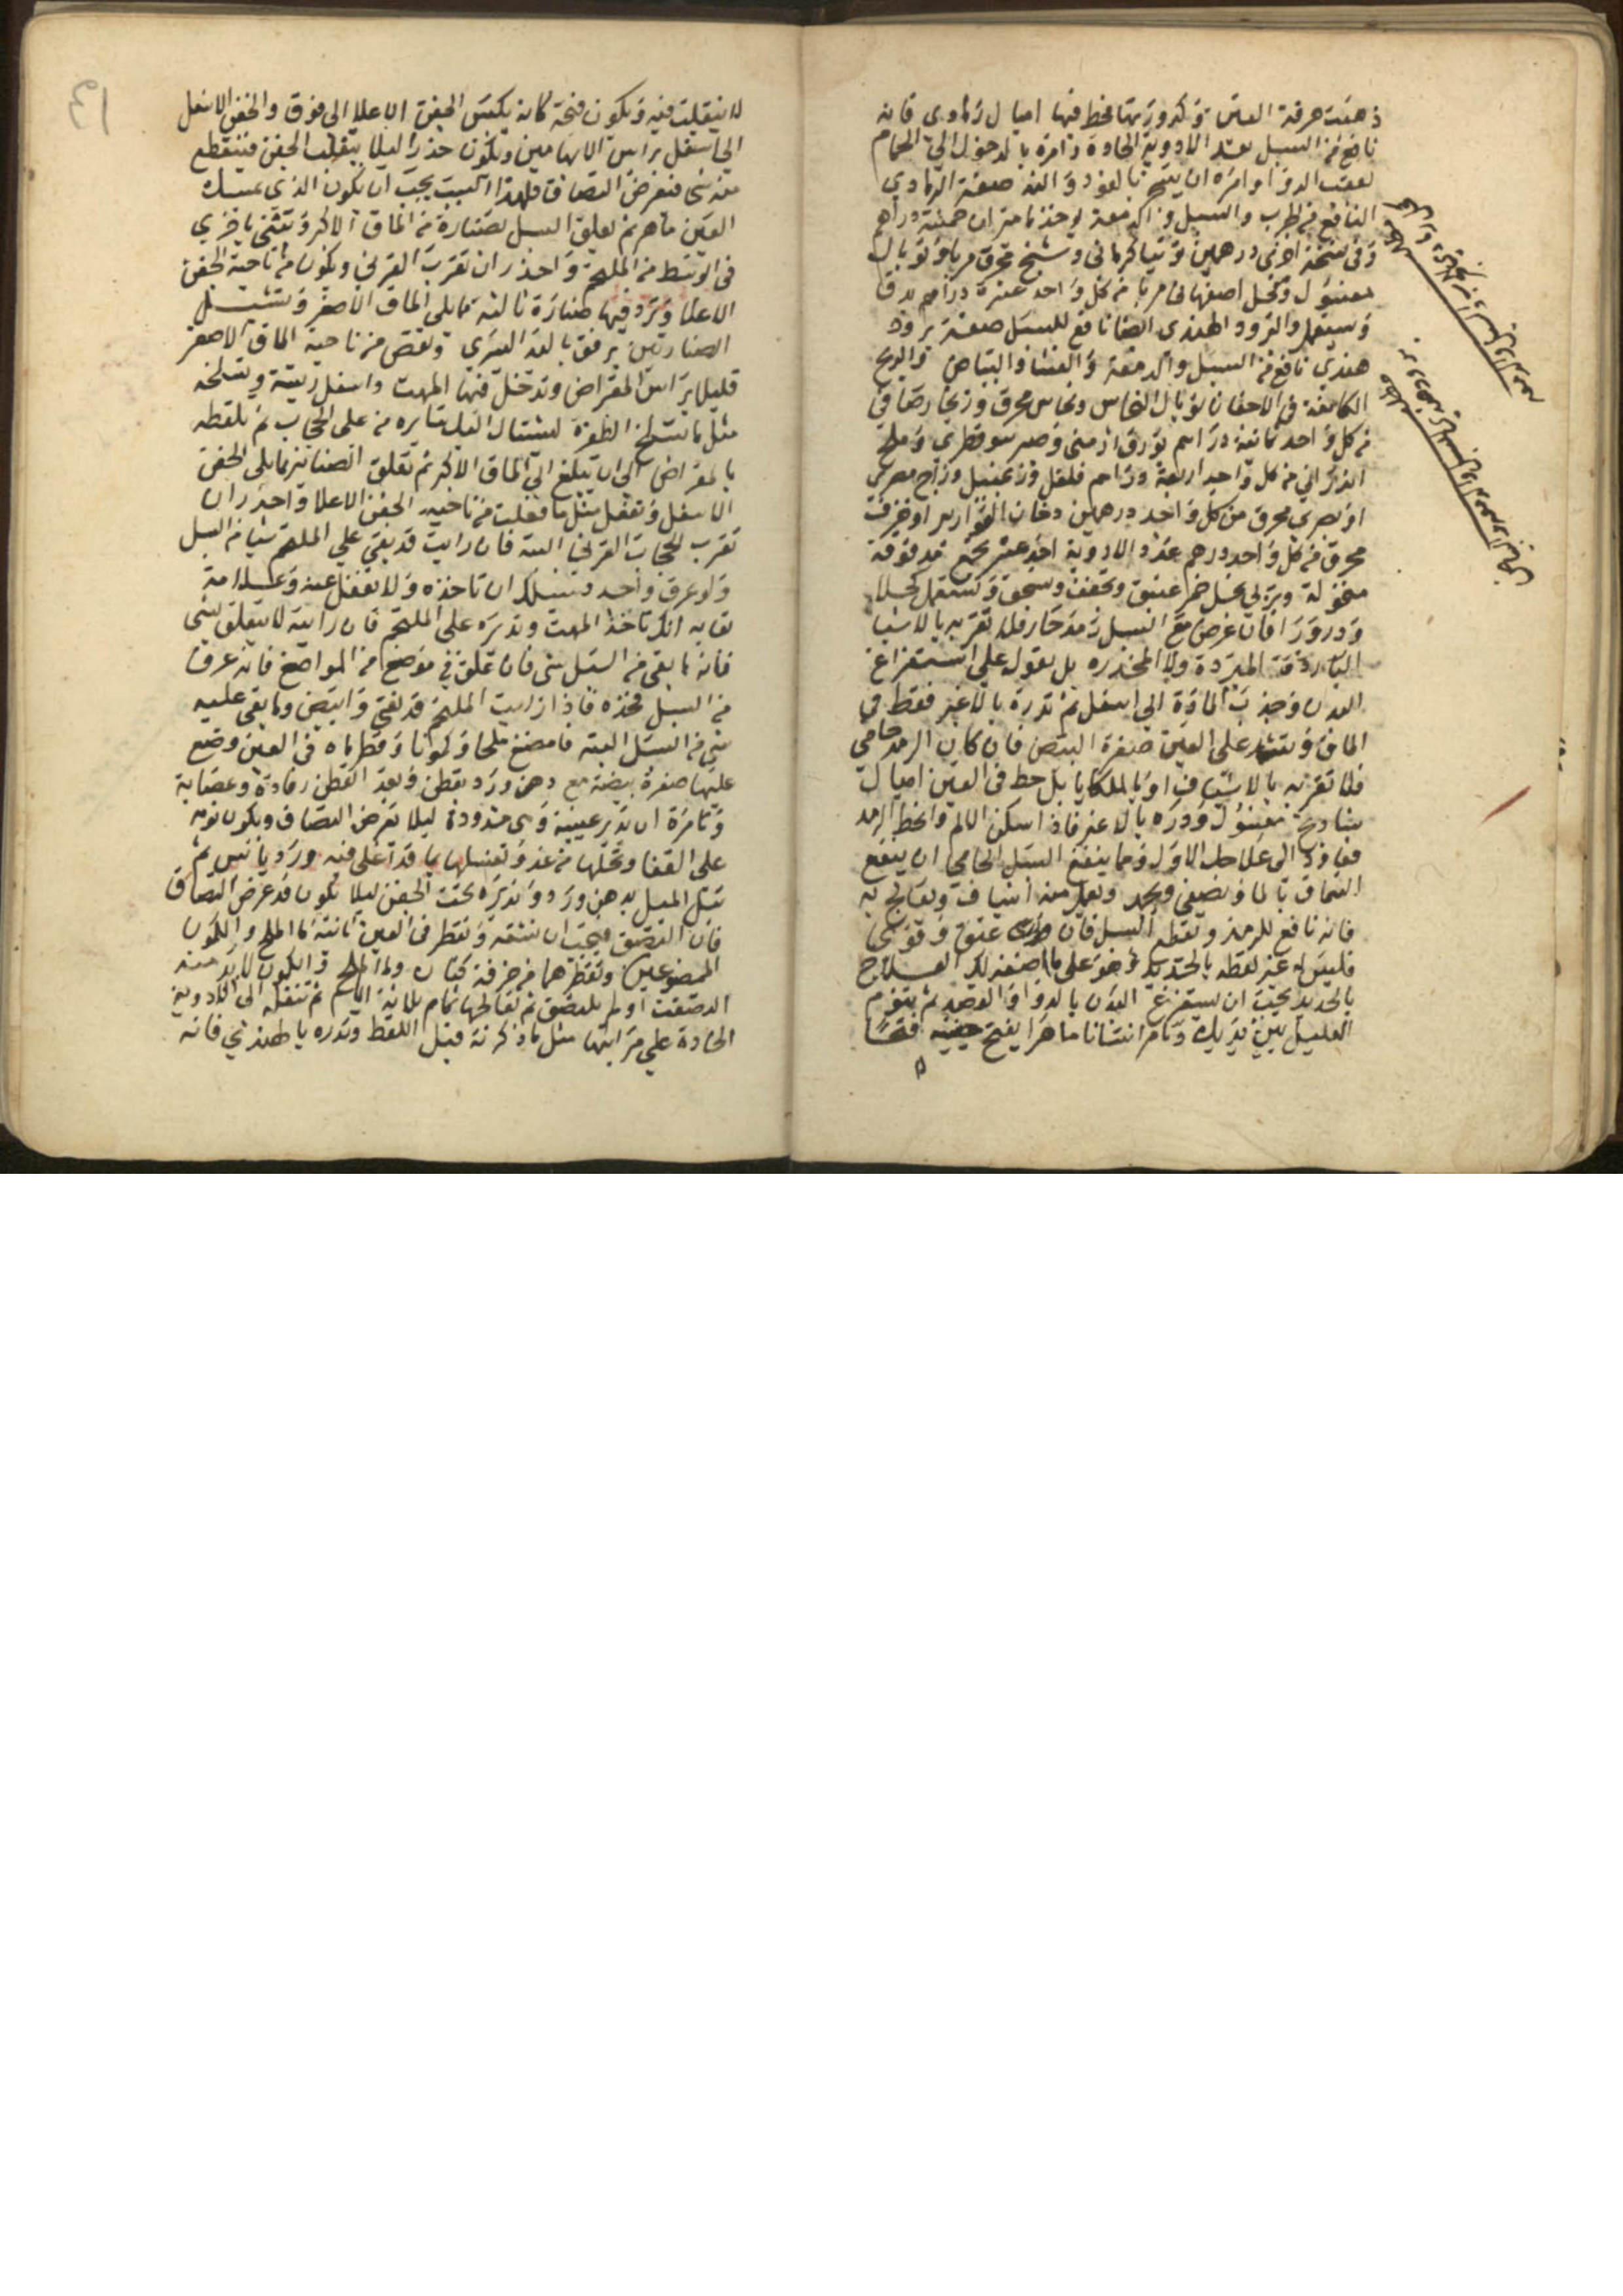 ذهبت حرقة العين وكدورتها فحط فيها اميال رمادى فانه
نافع من السبل بعد الادوية الحادة وامره بالدخول الى الحمام
بعقب الدوا وامره ان يتبخر بالعود والند صفة الرمادي
النافع من الجرب والسبل والدمعة يوخذ نامتران خمسة دراهم
وفى نسخة اخرى درهمين وتتيا كرمانى وشيح محرق مربا وتوبال
مغسول وكحل اصفهانى مربا من كل واحد عشرة دراهم يدق
ويستعمل والبرود الهندى ايضا نافع للسبل صفة برود
هندي نافع من السبل والدمعة والغشا والبياض والريح
الكامنة فى الاجفان توبال النحاس ونحاس محرق وزنجار صافى
من كل واحد ثمانية دراهم بورق ارمنى وصبر سوقطري وملح
اندرانى من كل واحد اربعة دراهم فلفل وزنجبيل وزاج مصرى
او بصرى محرق من كل واحد درهمين دخان القوارير او خزف
محرق من كل واحد درهم عدد الادوية احد عشر تجمع مدقوقة
منخولة وتربى بخل خمر عتيق وتجفف وتسحق وتستعمل كحلا
ودرورا فان عرض مع السبل رمد حار فلا تقربه بالاشيا
الباردة المبردة ولا المخدره بل بعول على استفراغ
البدن وجذب المادة الى اسفل ثم تذره بالاغبر فقط فى
الماق وتشد على العين صفرة البيض فان كان الرمد حامى
فلا تقربه بالاشياف او بالملكايا بل حط فى العين اميال
شادنج مغسول وذره بالاغبر فاذا سكن الالم وانحط الرمد
فعاود الى علاجك الاول ومما ينفع السبل الحامى ان ينقع
السماق بالما ويصفى ويجمد ويعمل منه اشياف ويعالج به
فانه نافع للرمد ويقطع السبل فان عتق وقوى
فليس له غير لقطه بالحديد وهو على ما اصفه لك العلاج
بالحديد يجب ان يستفرغ البدن بالدوا والفصد ثم ينوم
العليل بين يديك وتامر انسانا ماهرا يفتح عينيه فتحا
لا ينقلب فيه ويكون فتحه كانه يكبس الجفن الاعلا الى فوق والجفن الاسفل
الى اسفل براس الابهامين ويكون حذرا ليلا ينقلب الجفن فينقطع
منه شى فيعرض التصاق فلهذا السبب يجب ان يكون الذى يمسك
العين ماهر ثم يعلق السبل بصنارة من الماق الاكبر وتثنى باخري
فى الوسط من الملتحم واحذر ان تقرب القرنى ويكون من ناحية الجفن
الاعلا وترد فيها صنارة ثالثة مما يلى الماق الاصغر وتشيل
الصنارتين برفق باليد اليسرى وتقص من ناحية الماق الاصغر
قليلا براس المقراض وتدخل فيها المهت واسفل ريشة وتسلخه
مثل ما تسلخ الظفرة لينشال السبل بتايره من على الحجاب ثم تلقطه
بالمقراض الى ان تبلغ الى الماق الاكبر ثم تعلق الصنانير مما يلى الجفن
الاسفل وتفعل مثل ما فعلت من ناحية الجفن الاعلا واحذر ان
تقرب الحجاب القرنى البتة فان رايت قد بقى على الملتحم شيا من السبل
ولو عرق واحد فسبيلك ان تاخذه ولا تغفل عنه وعلامة
نقايه انك تاخذ المهت وتديره على الملتحم فان رايته لا يتعلق بشى
فانه ما بقى من السبل شى فان علق فى موضع من المواضع فانه عرق
من السبل فخذه فاذا رايت الملتحم قد نقى وابيض وما بقى عليه
شى من السبل البتة فامضغ ملحا وكمونا وقطر ماه فى العين وضع
عليها صفرة بيضة مع دهن ورد بقطن وبعد القطن رفادة وعصابة
وتامره ان يدير عينيه وهى مشدودة ليلا يعرض التصاق ويكون نومه
على القفا وتحلها من غد وتغسلها بما قد اغلى فيه ورد يابس ثم
تبل الميل بدهن ورد وتديره تحت الجفن ليلا يكون قد عرض التصاق
فان التصق فيجب ان تشقه وتقطر فى العين ثانية ما الملح والكمون
الممضوغين وتقطرهما من خرقة كتان وما الملح والكمون لابد منه
التصقت او لم تلتصق ثم تعالجها تمام ثلاثة ايام ثم تنقله الى الادوية
الحادة على مراتبها مثل ما ذكرته قبل اللقط وتذره بالهندي فانه